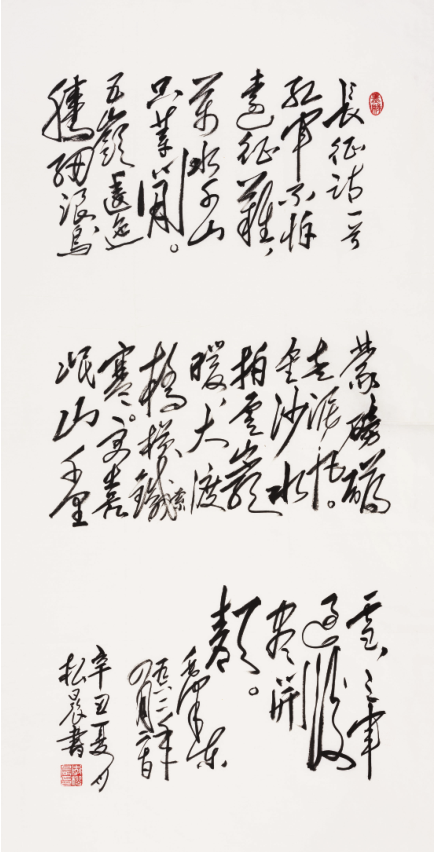 長征詩一首
红軍不怕
遠征難，
萬水千山
只等閒。
五嶺逶迤
騰細浪烏
蒙磅礴
走泥丸。
金沙水
拍雲崖
暖，大渡
橋橫鐵索
寒。更喜
岷山千里
雪，三軍
過後
盡開
顏。
毛澤東
一九六二年
四月二十日
辛丑夏月
松晨書